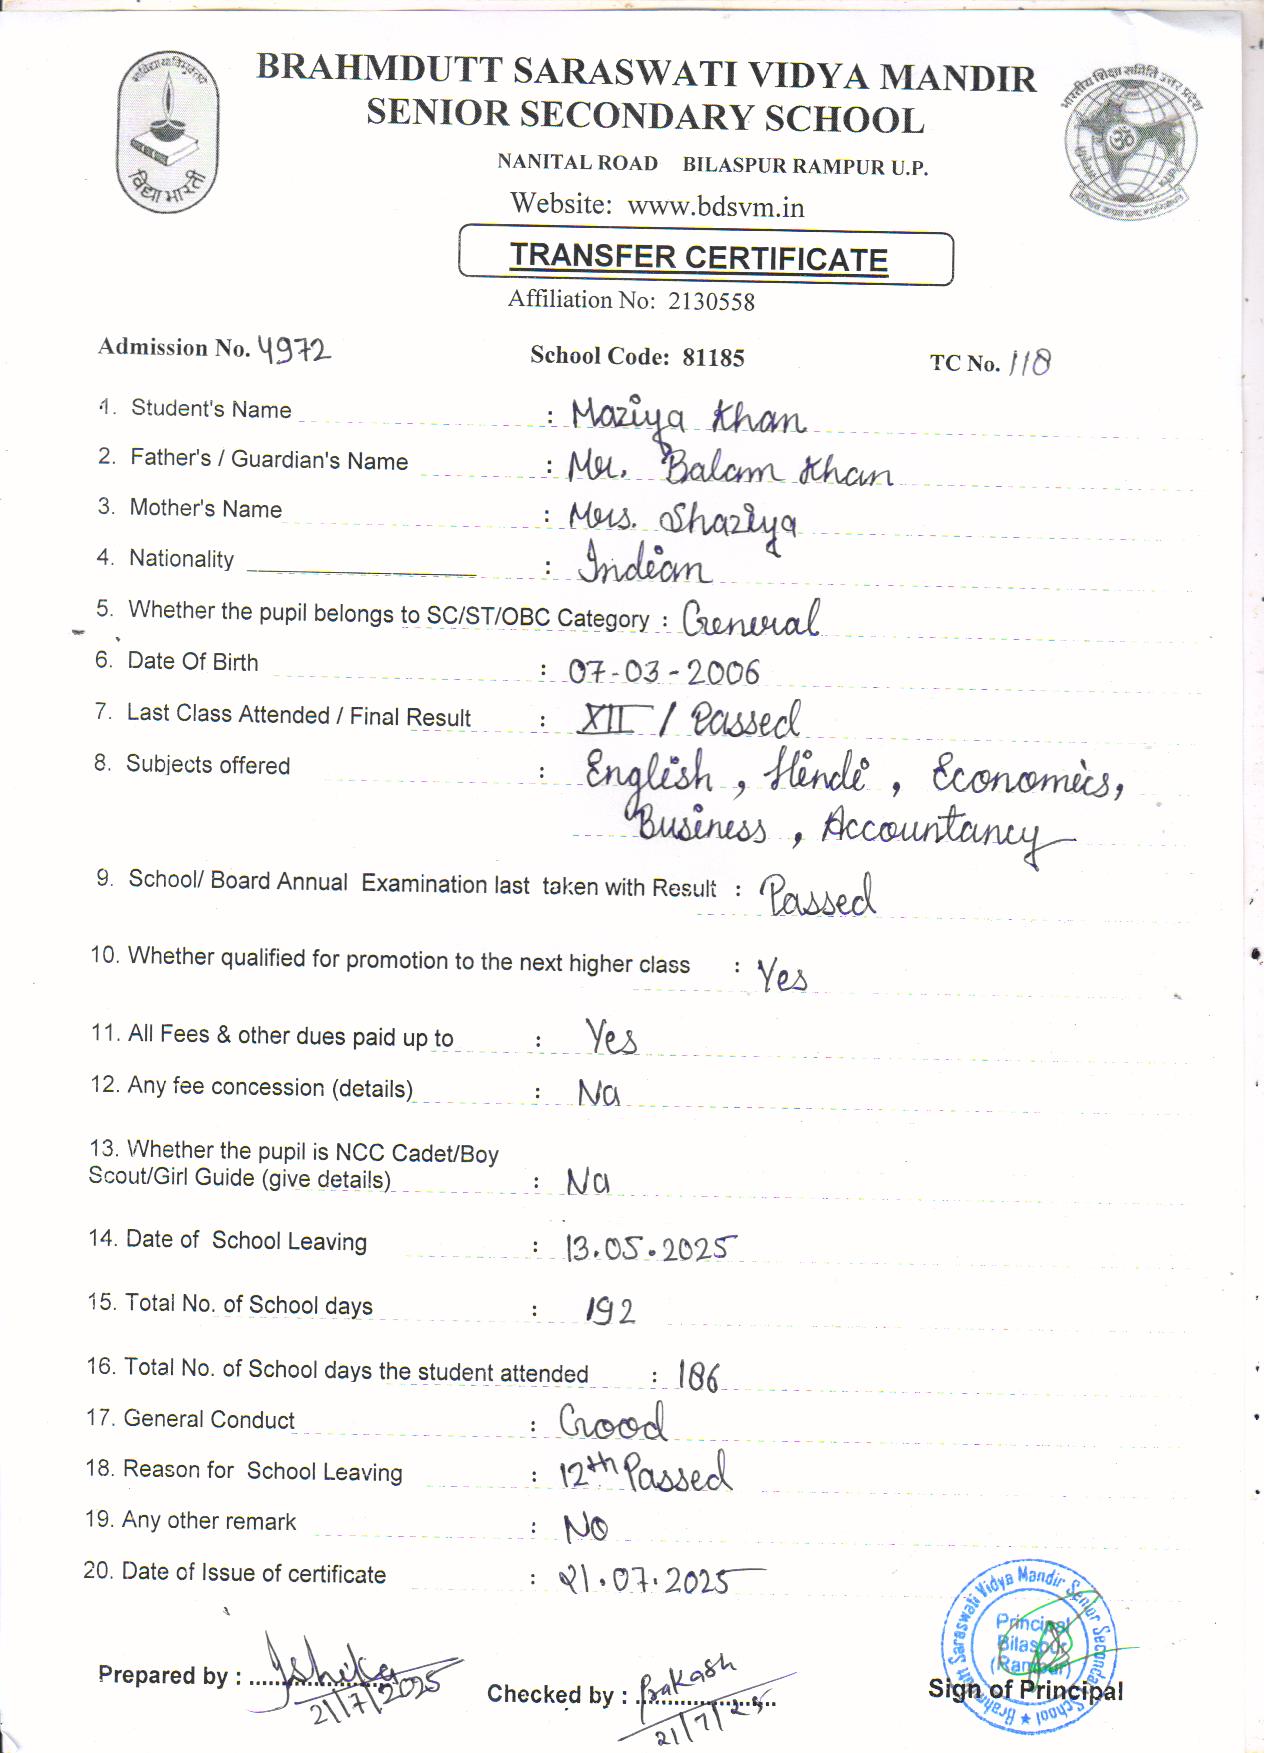 BRAHMDUTT SARASWATI VIDYA MANDIR
SENIOR SECONDARY SCHOOL
NANITAL ROAD BILASPUR RAMPUR U.P.
Website: www.bdsvm.in
विद्या भारती
भारतीय शिक्षा समिति उत्तर प्रदेश
ॐ
TRANSFER CERTIFICATE
Affiliation No: 2130558
Admission No. 4972 School Code: 81185 TC No. 118
1. Student's Name : Maziya Khan
2. Father's / Guardian's Name : Mr. Balam Khan
3. Mother's Name : Mrs. Shaziya
4. Nationality : Indian
5. Whether the pupil belongs to SC/ST/OBC Category : General
6. Date Of Birth : 07-03-2006
7. Last Class Attended / Final Result : XII / Passed
8. Subjects offered : English, Hindi, Economics,
Business, Accountancy
9. School/ Board Annual Examination last taken with Result : Passed
10. Whether qualified for promotion to the next higher class : Yes
11. All Fees & other dues paid up to : Yes
12. Any fee concession (details) : Na
13. Whether the pupil is NCC Cadet/Boy
Scout/Girl Guide (give details) : Na
14. Date of School Leaving : 13.05.2025
15. Total No. of School days : 192
16. Total No. of School days the student attended : 186
17. General Conduct : Good
18. Reason for School Leaving : 12th Passed
19. Any other remark : No
20. Date of Issue of certificate : 21.07.2025
Prepared by : Ishika
21/7/2025
Checked by : Prakash
21/7/25
Principal
Bilaspur
(Rampur)
Saraswati Vidya Mandir Senior Secondary School
Sign of Principal